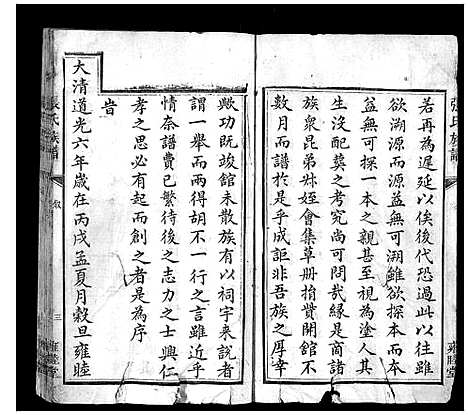 若再為遲延以俟後代恐過此以往雖
欲溯源而源益無可溯雖欲探本而本
益無可探一本之親甚至視為塗人其
生沒配塟之考究尚可問哉緣是商諸
族衆昆弟姪㑹集草册捐貲開舘不
數月而譜於是乎成詎非吾族之厚幸
歟功既竣舘未散族有以祠宇來説者
謂一舉而兩得胡不一行之言雖近乎
情奈譜費已繁待後之志力之士興仁
孝之思必有起而創之者是為序
旹
大清道光六年歲在丙戌孟夏月穀旦雍睦
張氏族譜
敘
三
雍睦堂